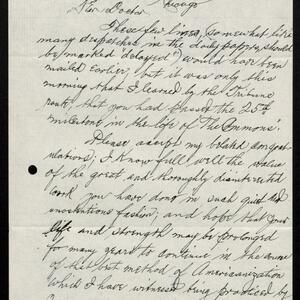 Dear Doctor
These few lines, somewhat like
many despatches in the daily papers, should
be marked "delayed") would have been
mailed earlier, but it was only this
morning that I learned by the Tribune
that you had passed the 25th
milestone in the life of The Commons.
Please accept my belated congrat-
ulations; I know full well the value
of the great and thoroughly disinterested
work you have done in such quiet and
unostentatious fashion; and hope that your
life and strength may be prolonged
for many years to continue in the
of that best method of Americanization
which I have witnessed being practiced by